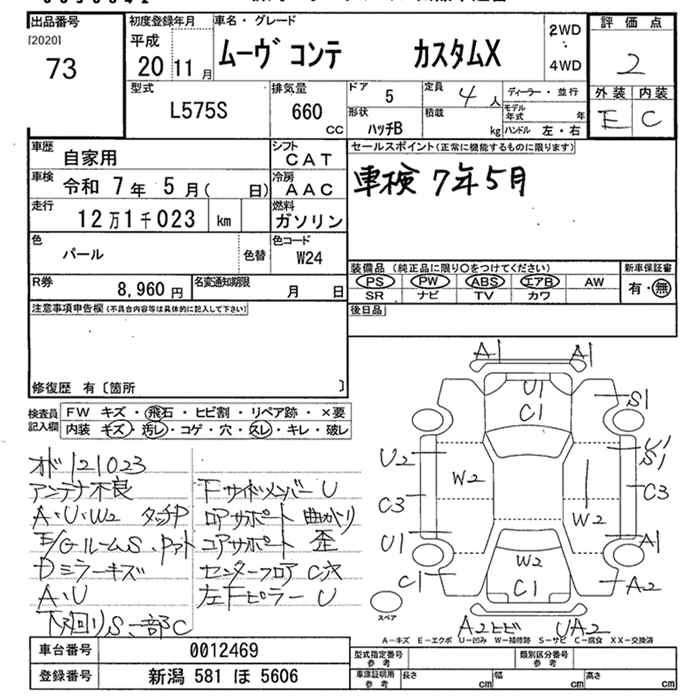 出品番号
[2020]
73
初度登録年月
平成
20 11月
車名・グレード
ムーヴ コンテ カスタムX
2WD
・
4WD
評価点
2
外装 内装
E C
型式
L575S
排気量
660
CC
ドア
5
定員
4人
形状
ハッチB
積載
kg
ディーラー・並行
モデル年式 年
ハンドル 左・右
車歴
自家用
シフト
CAT
車検
令和 7年 5月( 日)
冷房
AAC
走行
12万1千023 km
燃料
ガソリン
色
パール
色替
色コード
W24
R券
8,960 円
名変通知期限
月 日
セールスポイント(正常に機能するものに限ります)
車検 7年5月
装備品 (純正品に限り○をつけてください)
PS PW ABS エアB AW
SR ナビ TV カワ
新車保証書
有・無
後日品
注意事項申告欄(不具合内容等は具体的に記入して下さい)
修復歴 有〔箇所 〕
検査員記入欄
FW キズ・飛石・ヒビ割・リペア跡・×要
内装 キズ・汚レ・コゲ・穴・スレ・キレ・破レ
オド121023
アンテナ不良
A・U・W2 タッチP
E/GルームS、Pアト
Dミラーキズ
A・U
下廻りS、一部C
下サイドメンバーU
ロアサポート 曲がり
コアサポート 歪
センターフロア C穴
左下ピラー U
A1 A1
U1
C1
S1
U2
U1
S1
W2
C3
C3
W2
U1
A1
C1
W2
C1
A2
スペア
A2ヒビ UA2
A－キズ E－エクボ U－凹み W－補修跡 S－サビ C－腐食 XX－交換済
車台番号
0012469
登録番号
新潟 581 ほ 5606
型式指定番号
参考
類別区分番号
参考
車庫証明用
参考
長さ cm
幅 cm
高さ cm